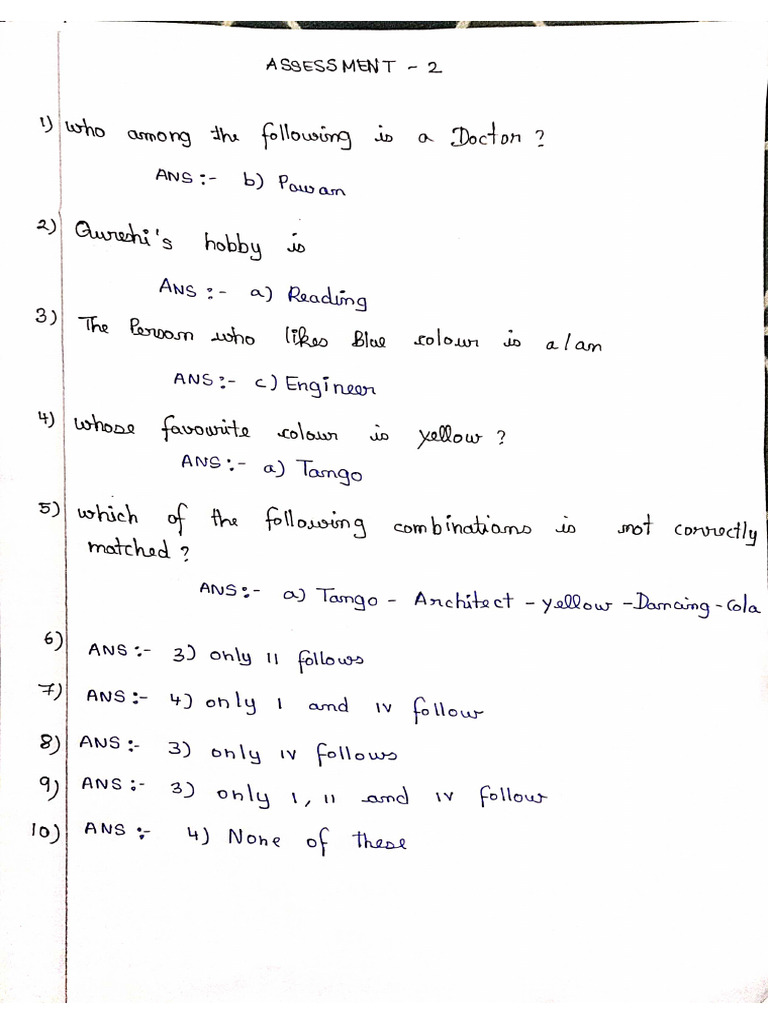 ASSESSMENT - 2
1) Who among the following is a Doctor?
ANS :- b) Pawan
2) Qureshi's hobby is
ANS :- a) Reading
3) The Person who likes Blue colour is a/an
ANS :- c) Engineer
4) whose favourite colour is yellow?
ANS :- a) Tango
5) which of the following combinations is not correctly
matched?
ANS :- a) Tango - Architect - yellow - Dancing - Cola
6) ANS :- 3) only II follows
7) ANS :- 4) only I and IV follow
8) ANS :- 3) only IV follows
9) ANS :- 3) only I, II and IV follow
10) ANS :- 4) None of these